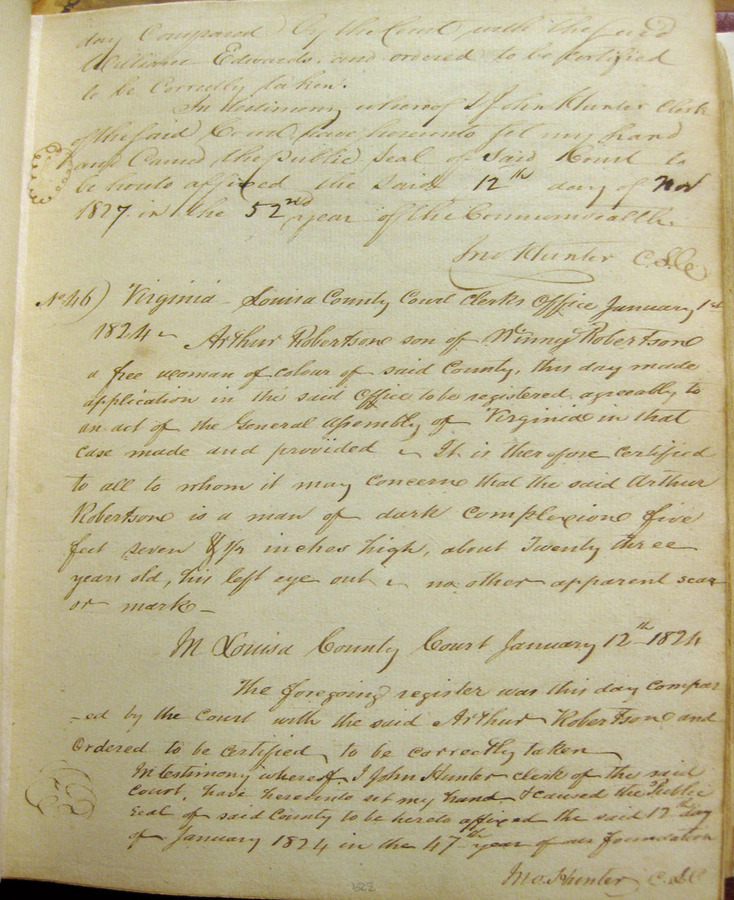 day Compared by the Court with the said
William Edwards and ordered to be Certified
to be Correctly taken.
In testimony whereof I John Hunter Clerk
of the said Court have hereunto set my hand
and Caused the public Seal of said Court to
be hereto affixed the said 12th day of Nov
1827 in the 52nd year of the Commonwealth
Jno Hunter C.L.C
No 46) Virginia - Louisa County Court Clerks Office January 1st
1824 - Arthur Robertson son of Winny Robertson
a free woman of colour of said County, this day made
application in the said Office to be registered agreeably to
an act of the General Assembly of Virginia in that
case made and provided - It is therefore certified
to all to whom it may Concern that the said Arthur
Robertson is a man of dark complexion five
feet seven & 1/2 inches high, about Twenty three
years old, his left eye out & no other apparent scar
or mark -
In Louisa County Court January 12th 1824
The foregoing register was this day compar
-ed by the Court with the said Arthur Robertson and
Ordered to be certified to be correctly taken
In testimony whereof I John Hunter clerk of the said
Court, have hereunto set my hand & caused the Public
Seal of said County to be hereto affixed the said 12th day
of January 1824 in the 47th year of our foundation
Jno Hunter C.L.C